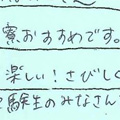 寮おすすめです。
楽しい！さびしく
験生のみなさん